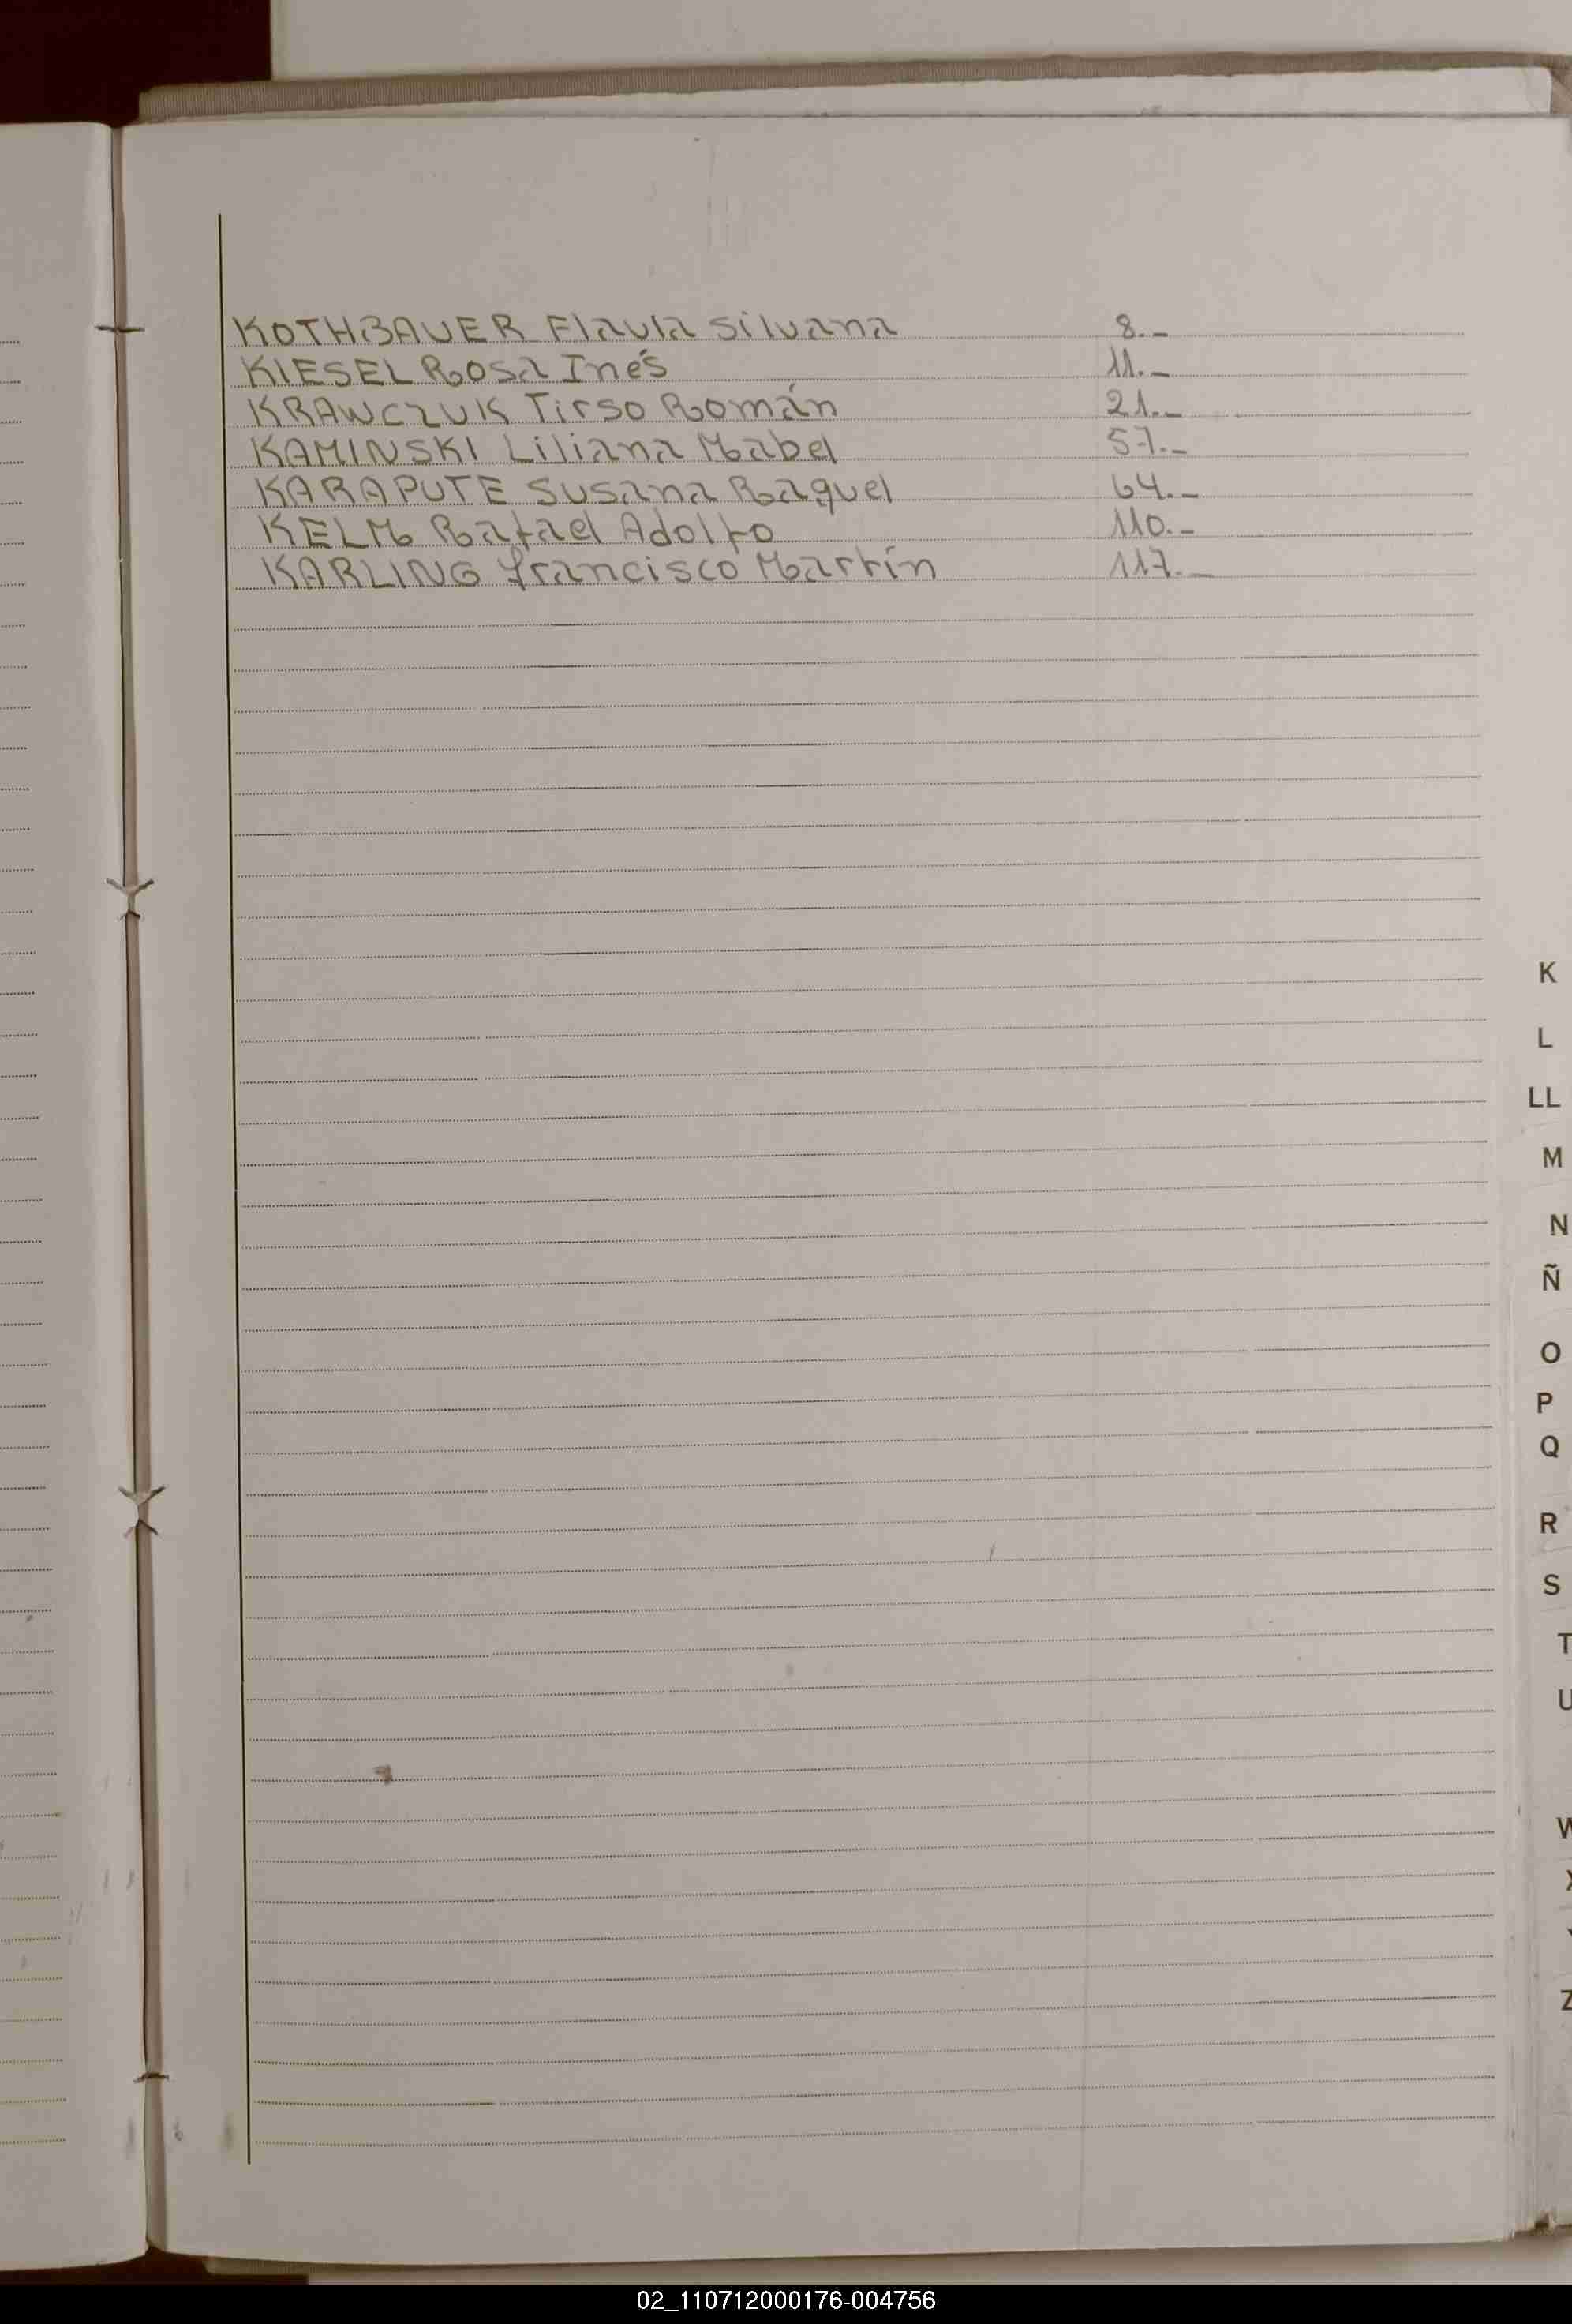 KOTHBAUER Flavia Silvana 8.-
KIESEL Rosa Inés 11.-
KRAWCZUK Tirso Román 21.-
KAMINSKI Liliana Mabel 57.-
KARAPUTE Susana Raquel 64.-
KELM Rafael Adolfo 110.-
KARLING Francisco Martín 117.-
K
L
LL
M
N
Ñ
O
P
Q
R
S
T
U
W
X
Y
Z
02_110712000176-004756